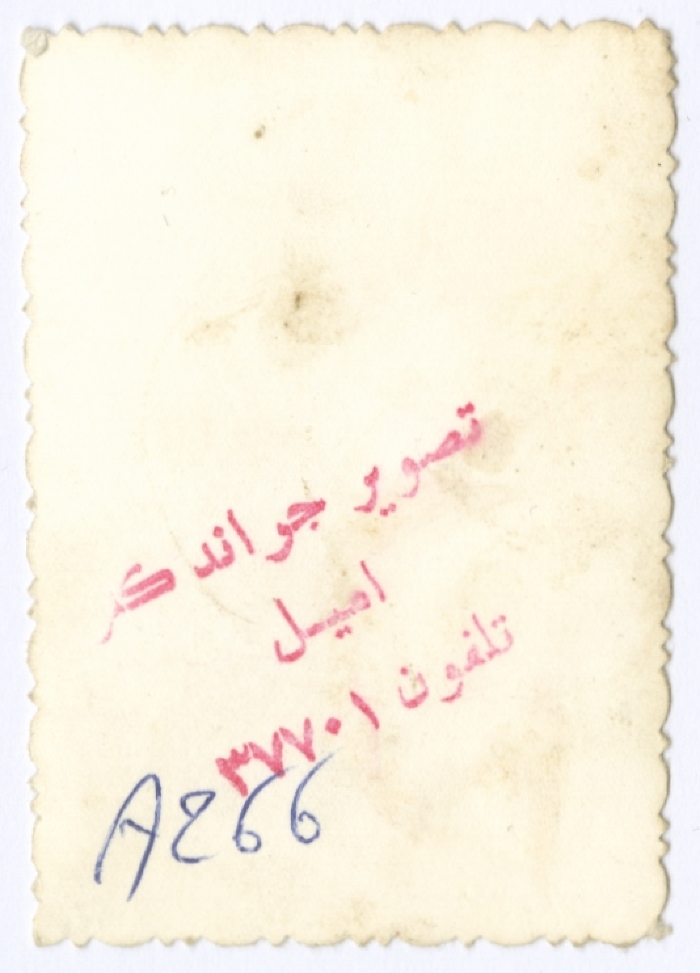 تصوير جواندكر
اميل
تلفون ٣٧٧٠١
A266